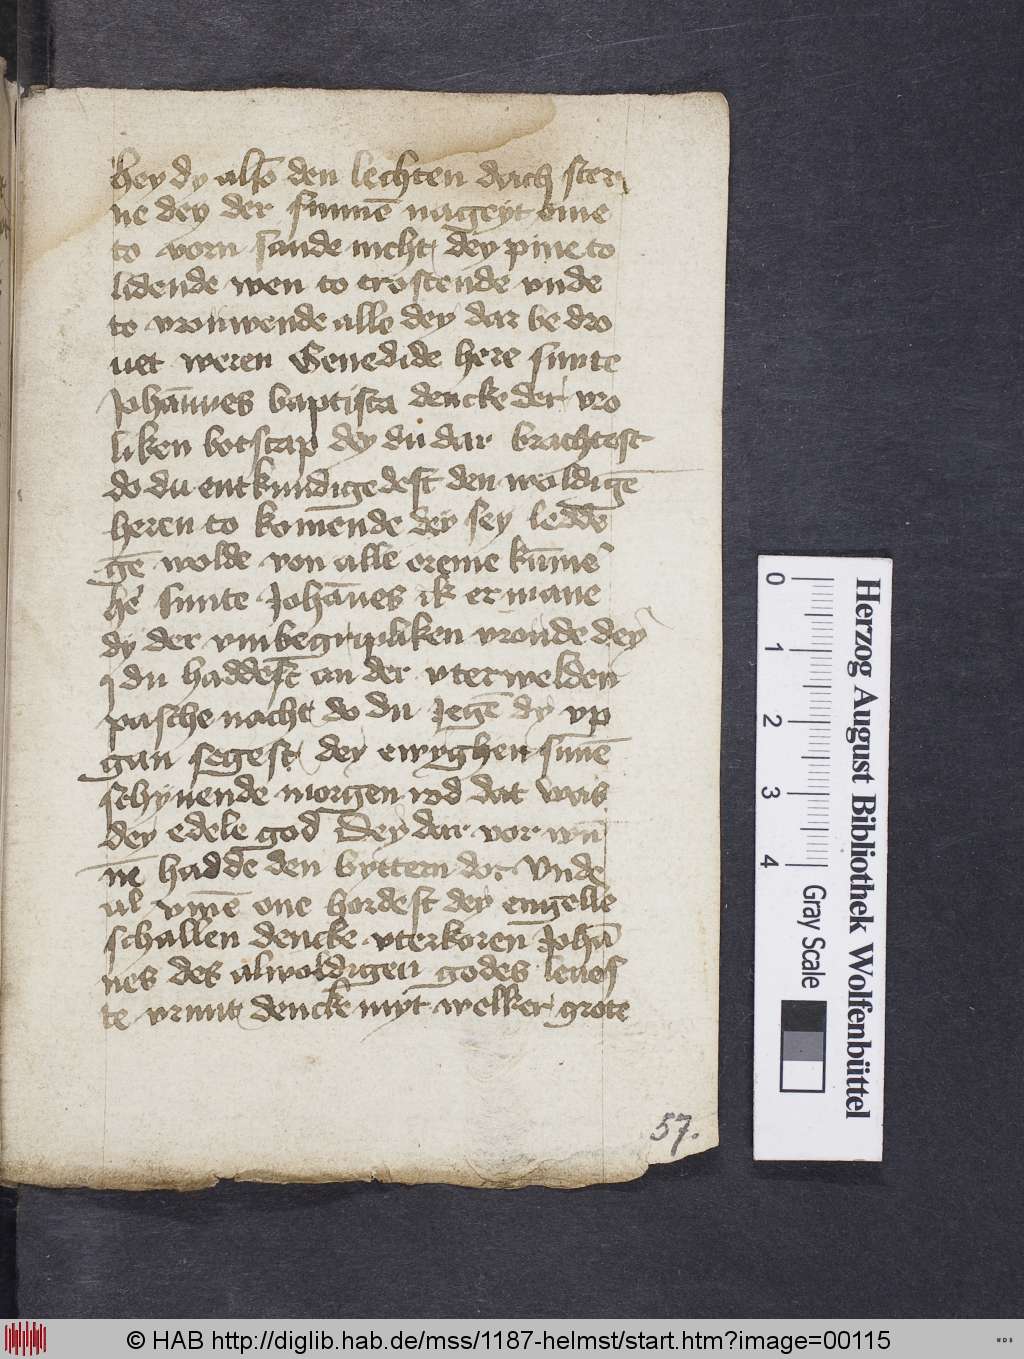 hey dy alsō den lechten dach ster
ne dey der sunnē nageyt eme
to vorn sande nicht dey pine to
lidende wen to trostende vnde
to vrouwende alle dey dar be dro
uet weren Genedide here sunte
Johānnes baptista dencke der vro
liken botscap dey du dar brachtest
do du entkundigedest den woldigē
heren to komende dey sey leddē
gē wolde von alle ereme kūme
he sunte Johānes ik ermane
dy der vmbegripliken vronde dey
du haddest an der vterwelden
pasche nacht do du Jegē dy vp
gan segest dey ewyghen sunē
schynende morgen rod dat was
dey edele god Dey dar vor wū
nē hadde den byttern dot Vnde
al vmē one hordest dey engelle
schallen dencke vterkoren Johā
nes des alwoldigen godes leues
te vrunt dencke myt welker grote
57.
Herzog August Bibliothek Wolfenbüttel
0 1 2 3 4
Gray Scale
© HAB http://diglib.hab.de/mss/1187-helmst/start.htm?image=00115